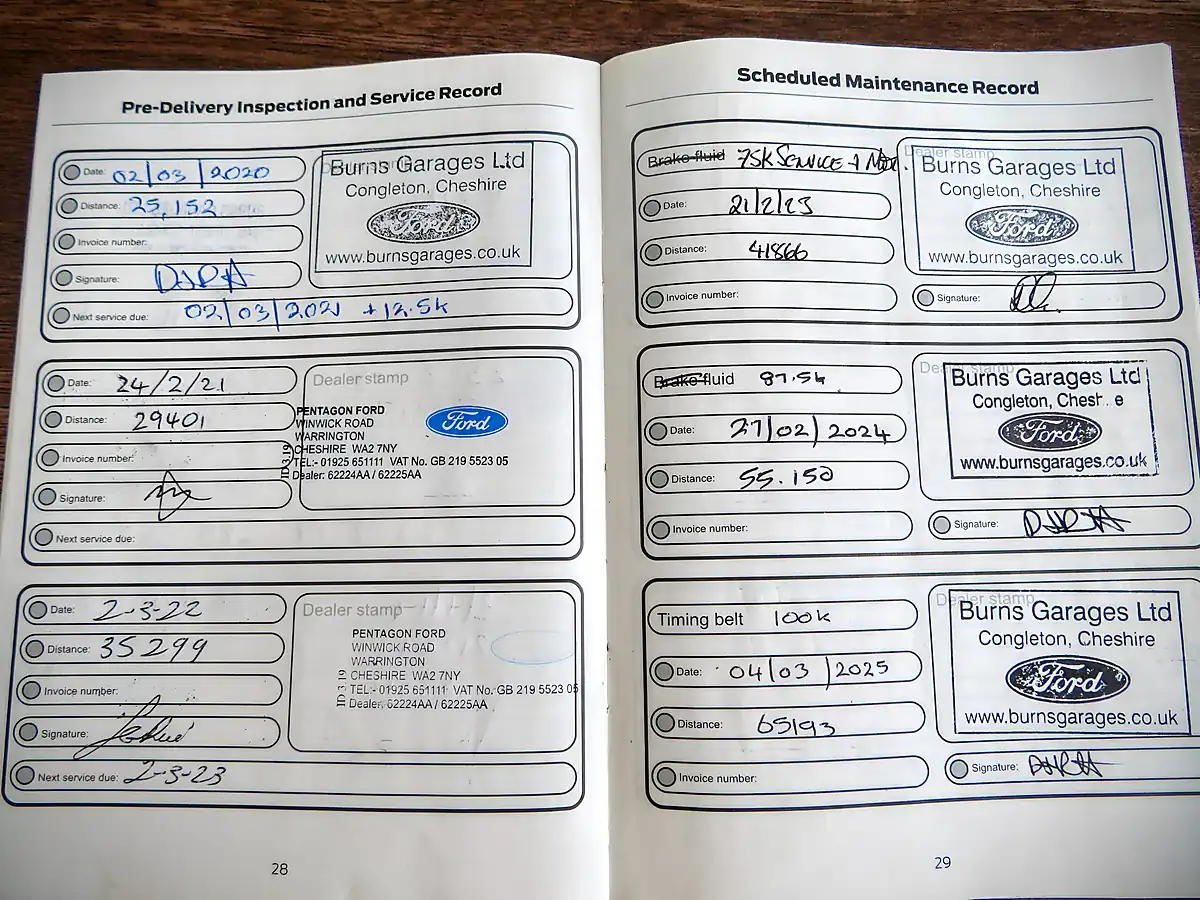 Pre-Delivery Inspection and Service Record
Date: 02/03/2020
Distance: 25,152
Invoice number:
Signature:
Next service due: 02/03/2021 +12.5k
Dealer stamp
Burns Garages Ltd
Congleton, Cheshire
Ford
www.burnsgarages.co.uk
Date: 24/2/21
Distance: 29401
Invoice number:
Signature:
Next service due:
Dealer stamp
PENTAGON FORD
WINWICK ROAD
WARRINGTON
CHESHIRE WA2 7NY
TEL:- 01925 651111 VAT No. GB 219 5523 05
Dealer: 62224AA / 62225AA
Ford
Date: 2-3-22
Distance: 35299
Invoice number:
Signature:
Next service due: 2-3-23
Dealer stamp
PENTAGON FORD
WINWICK ROAD
WARRINGTON
CHESHIRE WA2 7NY
TEL:- 01925 651111 VAT No. GB 219 5523 05
Dealer: 62224AA / 62225AA
28
Scheduled Maintenance Record
Brake fluid 75K SERVICE +
Date: 21/2/23
Distance: 41866
Invoice number:
Dealer stamp
Burns Garages Ltd
Congleton, Cheshire
Ford
www.burnsgarages.co.uk
Signature:
Brake fluid 87.5k
Date: 27/02/2024
Distance: 55.150
Invoice number:
Burns Garages Ltd
Congleton, Chest. e
Ford
www.burnsgarages.co.uk
Signature:
Timing belt 100k
Date: 04/03/2025
Distance: 65193
Invoice number:
Dealer stamp
Burns Garages Ltd
Congleton, Cheshire
Ford
www.burnsgarages.co.uk
Signature:
29